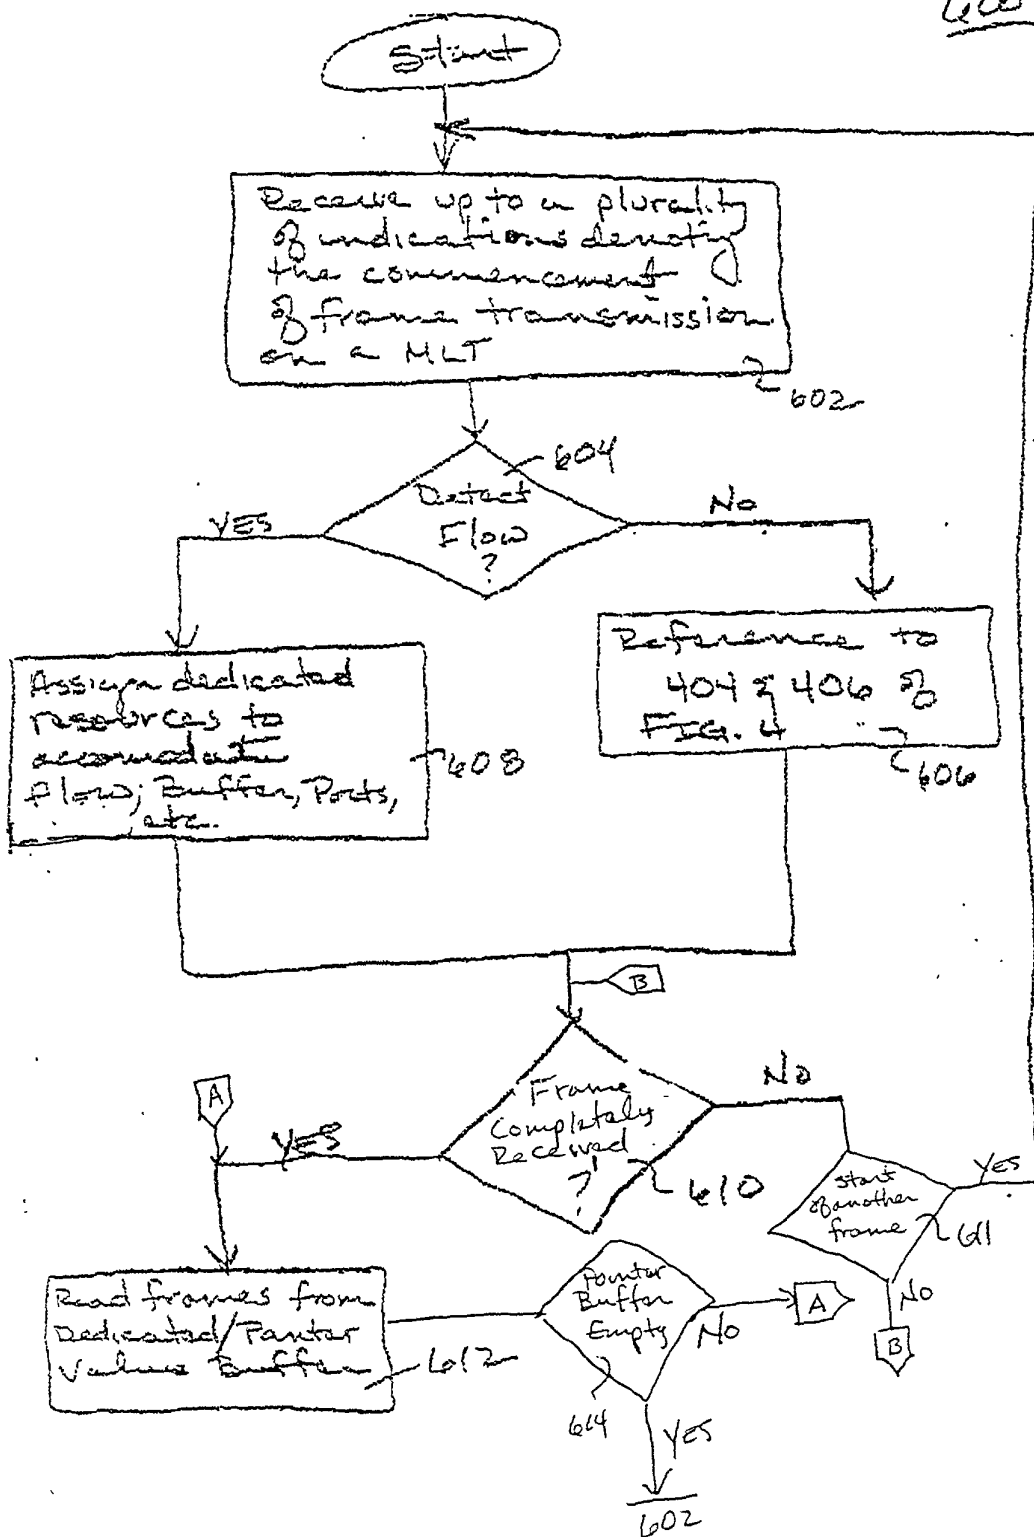 600
Start
Receive up to a plurality
of indications denoting
the commencement
of frame transmission
on a MLT
602
604
Detect
Flow
?
YES
No
Assign dedicated
resources to
accomodate
flow; Buffer, Ports,
etc.
608
Reference to
404 & 406 of
FIG. 4
606
B
A
Frame
Completely
Received
?
YES
No
610
start
of another
frame
YES
611
NO
B
Read frames from
Dedicated/Pointer
Values Buffer
612
Pointer
Buffer
Empty
NO
A
614
YES
602